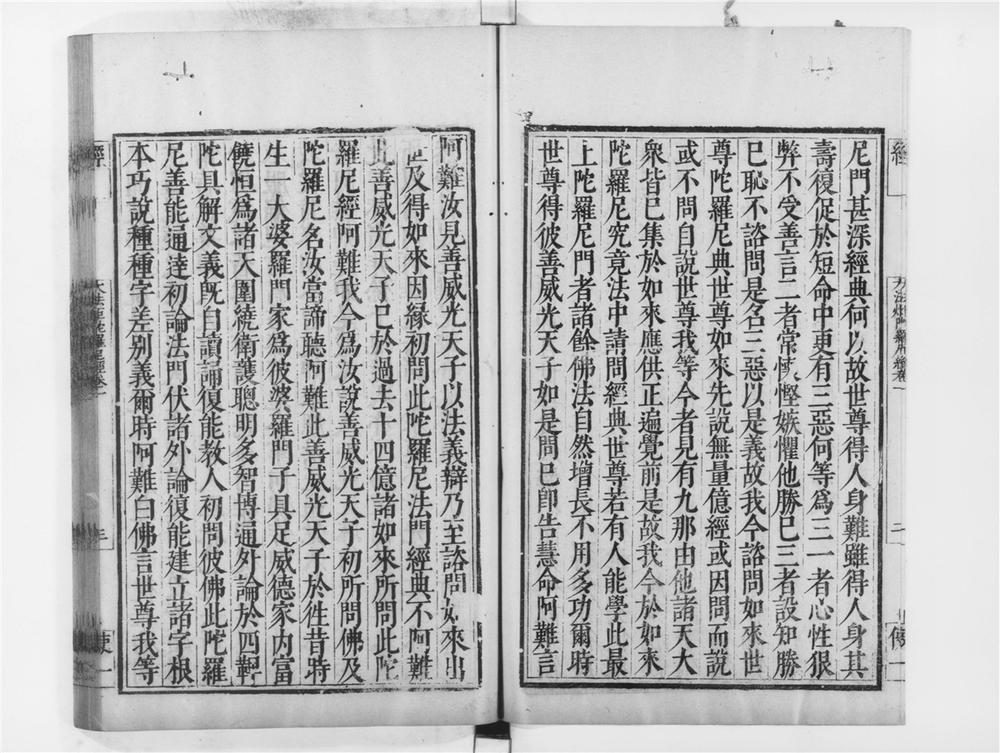 尼門甚深經典何以故世尊得人身難雖得人身其
壽復促於短命中更有三惡何等爲三一者心性很
弊不受善言二者常懷慳嫉懼他勝已三者設知勝
已恥不諮問是名三惡以是義故我今諮問如來世
尊陀羅尼典世尊如來先說無量億經或因問而說
或不問自說世尊我等今者見有九那由他諸天大
衆皆已集於如來應供正遍覺前是故我今於如來
陀羅尼究竟法中請問經典世尊若有人能學此最
上陀羅尼門者諸餘佛法自然增長不用多功爾時
世尊得彼善威光天子如是問已卽告慧命阿難言
阿難汝見善威光天子以法義辯乃至諮問如來出
世及得如來因緣初問此陀羅尼法門經典不阿難
此善威光天子已於過去十四億諸如來所問此陀
羅尼經阿難我今爲汝說善威光天子初所問佛及
陀羅尼名汝當諦聽阿難此善威光天子於徃昔時
生一大婆羅門家爲彼婆羅門子具足威德家内富
饒恒爲諸天圍繞衛護聰明多智博通外論於四鞞
陀具解文義旣自讀誦復能教人初問彼佛此陀羅
尼善能通達初論法門伏諸外論復能建立諸字根
本巧說種種字差别義爾時阿難白佛言世尊我等